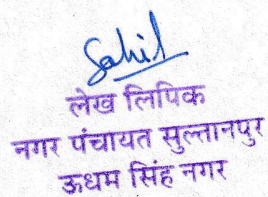 Sahil
लेख लिपिक
नगर पंचायत सुल्तानपुर
ऊधम सिंह नगर